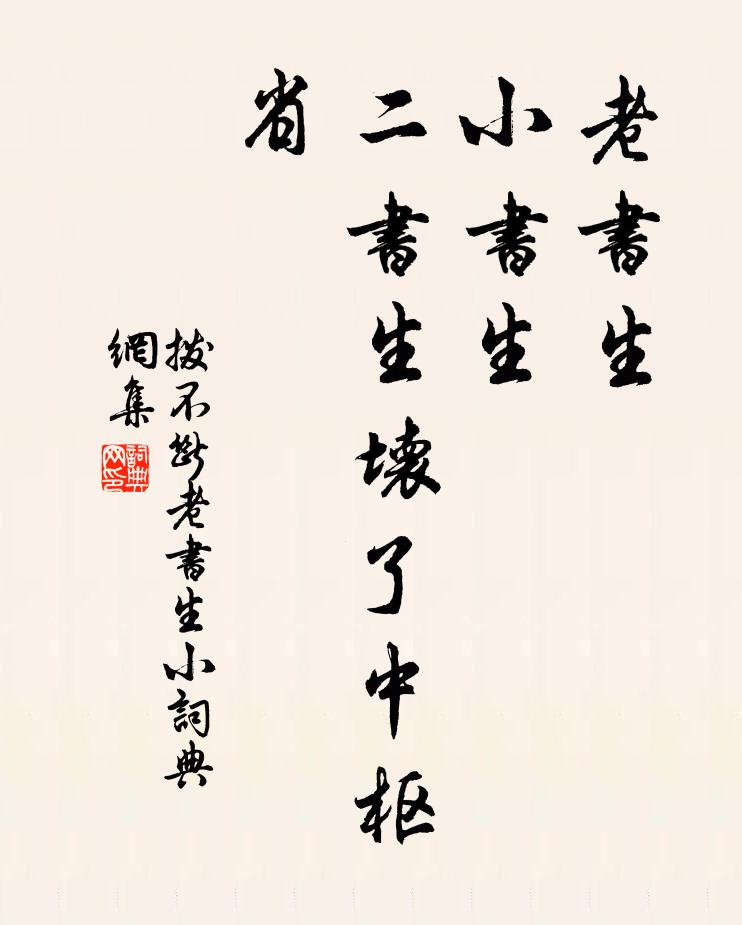 老書生
小書生
二書生壞了中枢
省
撥不斷老書生小詞典
網集
詞典
网印